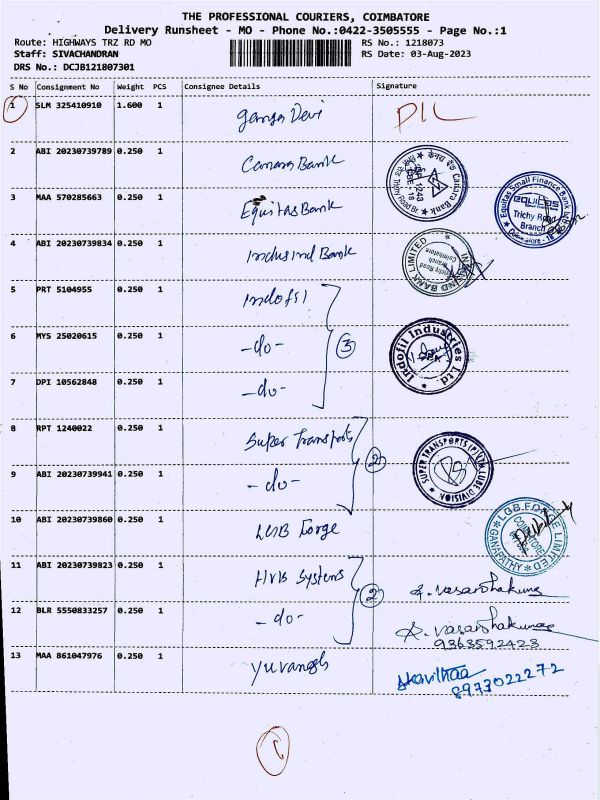 THE PROFESSIONAL COURIERS, COIMBATORE
Delivery Runsheet - MO - Phone No.:0422-3505555 - Page No.:1
Route: HIGHWAYS TRZ RD MO
RS No.: 1218073
Staff: SIVACHANDRAN
RS Date: 03-Aug-2023
DRS No.: DCJB121807301
S No Consignment No Weight PCS Consignee Details Signature
1 SLM 325410910 1.600 1 Ganga Devi
2 ABI 20230739789 0.250 1 Canara Bank
3 MAA 570285663 0.250 1 Equitas Bank
Equitas Small Finance Bank
equitas
Trichy Road
Branch
4 ABI 20230739834 0.250 1 Indusind Bank
INDUSIND BANK LIMITED
Trichy Road
Branch
Coimbatore
5 PRT 5104955 0.250 1 Indofil
6 MYS 25020615 0.250 1 -do- 3
Indofil Industries Ltd.
7 DPI 10562848 0.250 1 -do-
8 RPT 1240022 0.250 1 Super Transports
2
SUPER TRANSPORTS (P) LTD. LUBE DIVISION
9 ABI 20230739941 0.250 1 -do-
10 ABI 20230739860 0.250 1 LGB Forge
LGB FORGE LIMITED
COIMBATORE
GANAPATHY
11 ABI 20230739823 0.250 1 HVB Systems
2
12 BLR 5550833257 0.250 1 -do-
9363592423
13 MAA 861047976 0.250 1
8973022272